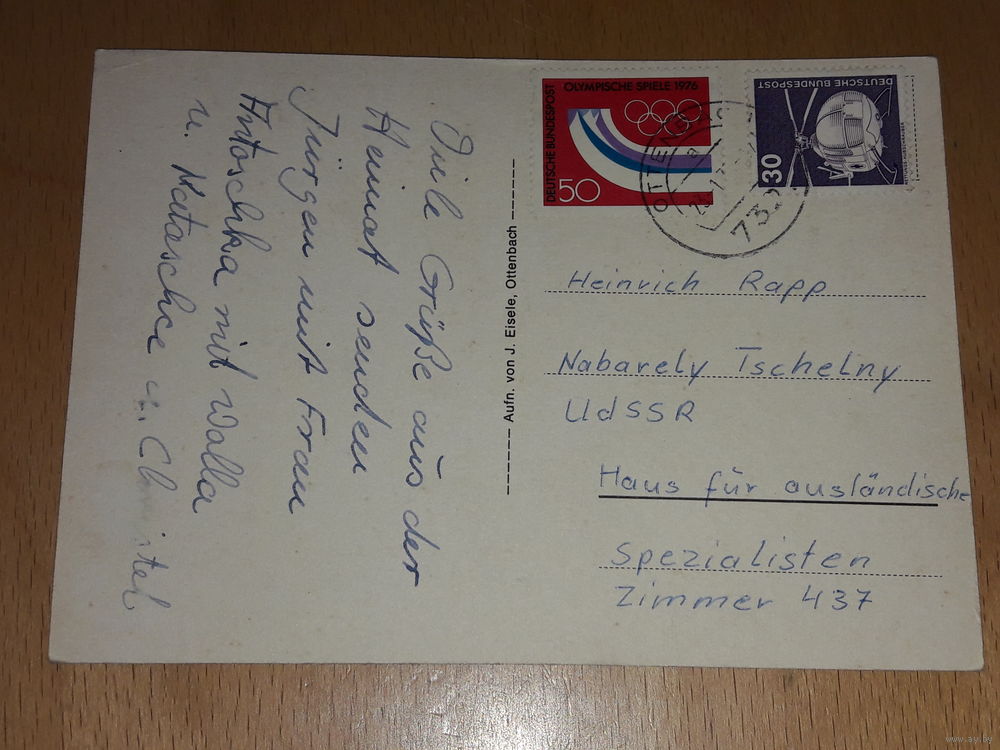 Viele Grüße aus der
Heimat senden
Jürgen mit Frau
Antoschka mit Walla
u. Natasche
Aufn. von J. Eisele, Ottenbach
DEUTSCHE BUNDESPOST
OLYMPISCHE SPIELE 1976
50
DEUTSCHE BUNDESPOST
30
OTTENB
73
Heinrich Rapp
Nabarely Tschelny
UdSSR
Haus für ausländische
Spezialisten
Zimmer 437
www.ay.by